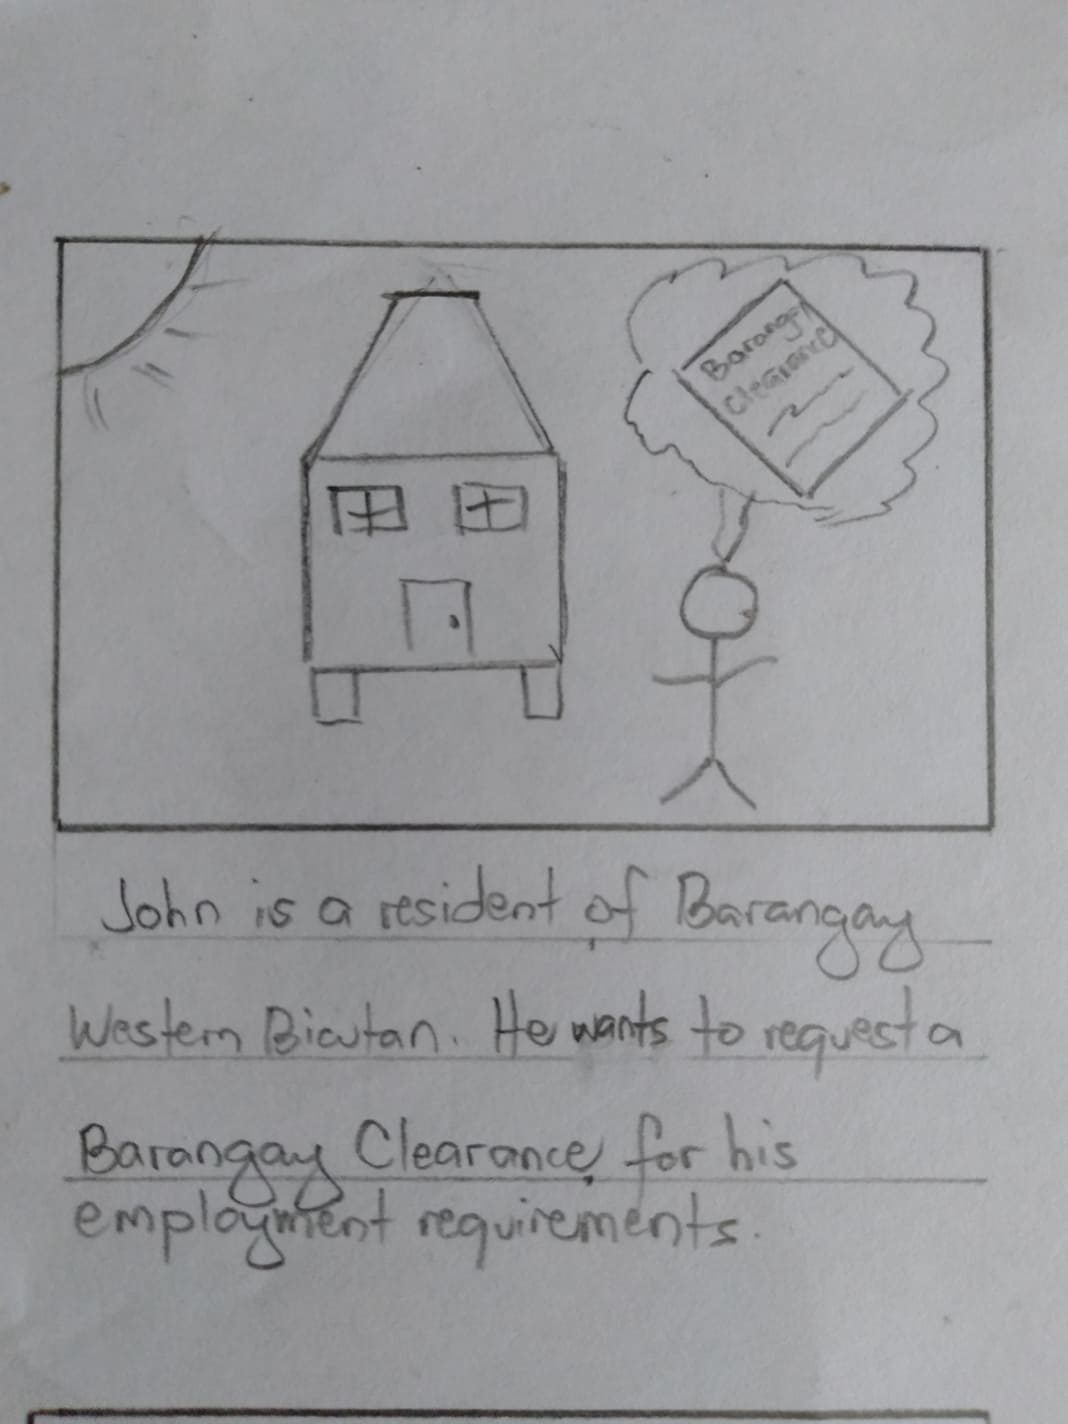 Barangay
Clearance
John is a resident of Barangay
Western Bicutan. He wants to request a
Barangay Clearance for his
employment requirements.